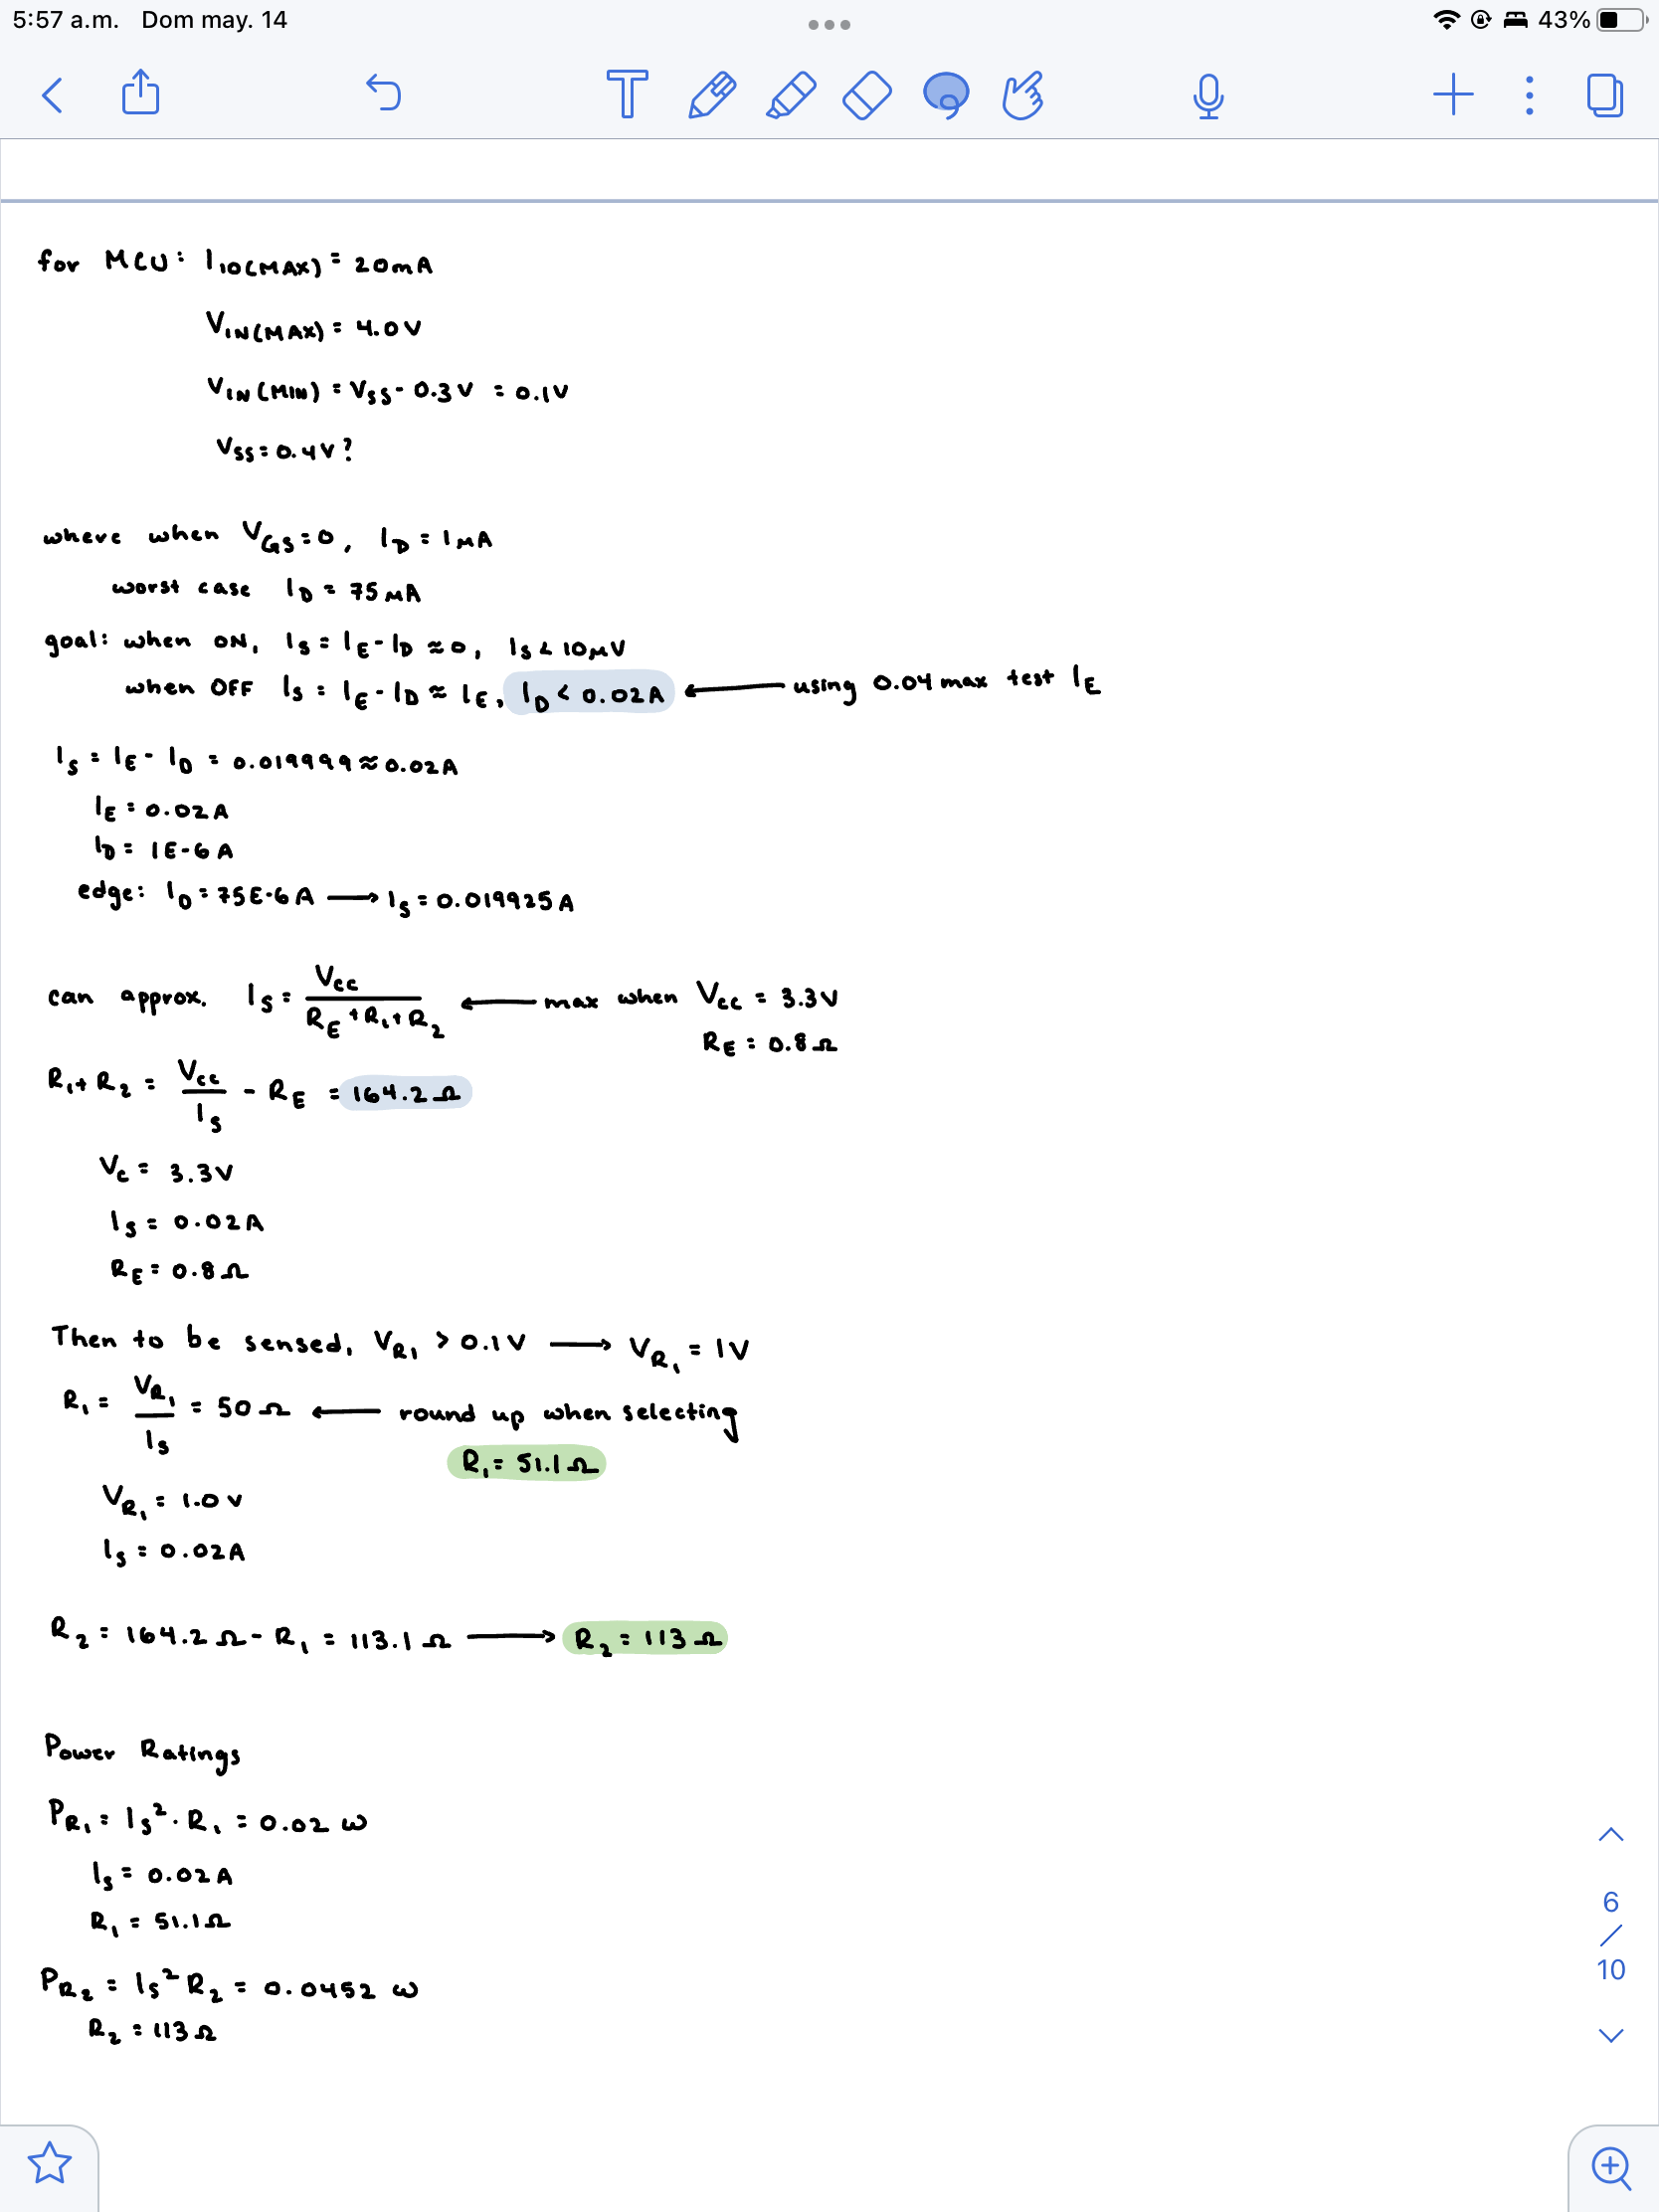 5:57 a.m. Dom may. 14
43%
for MCU: I IO(MAX) = 20mA
VIN(MAX) = 4.0V
VIN(MIN) = VSS - 0.3V = 0.1V
VSS = 0.4V?
where when VGS = 0, ID = 1μA
worst case ID = 75μA
goal: when ON, IS = IE - ID ≈ 0, IS < 10μV
when OFF IS = IE - ID ≈ IE, ID < 0.02A ← using 0.04 max test IE
IS = IE - ID = 0.019999 ≈ 0.02A
IE = 0.02A
ID = 1E-6A
edge: ID = 75E-6A → IS = 0.019925A
can approx. IS = Vcc / (RE + R1 + R2) ← max when Vcc = 3.3V
RE = 0.8Ω
R1 + R2 = Vcc / IS - RE = 164.2Ω
Vc = 3.3V
IS = 0.02A
RE = 0.8Ω
Then to be sensed, VR1 > 0.1V → VR1 = 1V
R1 = VR1 / IS = 50Ω ← round up when selecting
R1 = 51.1Ω
VR1 = 1.0V
IS = 0.02A
R2 = 164.2Ω - R1 = 113.1Ω → R2 = 113Ω
Power Ratings
PR1 = IS² · R1 = 0.02 W
IS = 0.02A
R1 = 51.1Ω
PR2 = IS² R2 = 0.0452 W
R2 = 113Ω
6
/
10